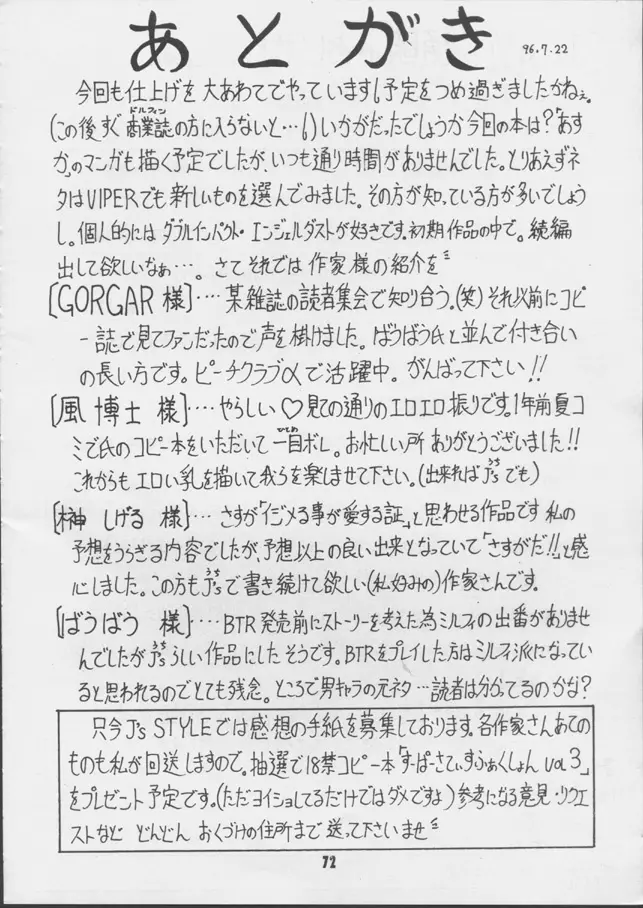 あとがき 96.7.22
今回も仕上げを大あわてでやっています!予定をつめ過ぎましたかねぇ。
ドルフィン
(この後すぐ商業誌の方に入らないと…!)いかがだったでしょうか今回の本は?「あす
か」のマンガも描く予定でしたが、いつも通り時間がありませんでした。とりあえずネ
タはVIPERでも新しいものを選んでみました。その方が知っている方が多いでしょう
し。個人的にはダブルインパクト・エンジェルダストが好きです。初期作品の中で。続編
出して欲しいなぁ…。さてそれでは作家様の紹介を
[GORGAR様]‥‥某雑誌の読者集会で知り合う。(笑)それ以前にコピ
ー誌で見てファンだったので声を掛けました。ばうばう氏と並んで付き合い
の長い方です。ピーチクラブαで活躍中。がんばって下さい!!
[風博士様]‥‥やらしい♡見ての通りのエロエロ振りです。1年前夏コ
ひとめ
ミで氏のコピー本をいただいて一目ボレ。お忙しい所ありがとうございました!!
うち
これからもエロい乳を描いて我らを楽しませて下さい。(出来ればJ'sでも)
[榊しげる様]‥‥さすが「イジメる事が愛する証」と思わせる作品です私の
予想をうらぎる内容でしたが、予想以上の良い出来となっていて「さすがだ!!」と感
うち
心しました。この方もJ'sで書き続けて欲しい(私好みの)作家さんです。
[ばうばう様]‥‥BTR発売前にストーリーを考えた為ミルフィの出番がありませ
うち
んでしたがJ'sらしい作品にしたそうです。BTRをプレイした方はミルフィ派になってい
ると思われるのでとても残念。ところで男キャラの元ネタ…読者は分かってるのかな?
只今J's STYLEでは感想の手紙を募集しております。各作家さんあての
ものも私が回送しますので。抽選で18禁コピー本「すーぱーさてぃすふぁくしょん vol 3」
をプレゼント予定です。(ただヨイショしてるだけではダメですよ)参考になる意見・リクエ
ストなど どんどん おくづけの住所まで送って下さいませ
72